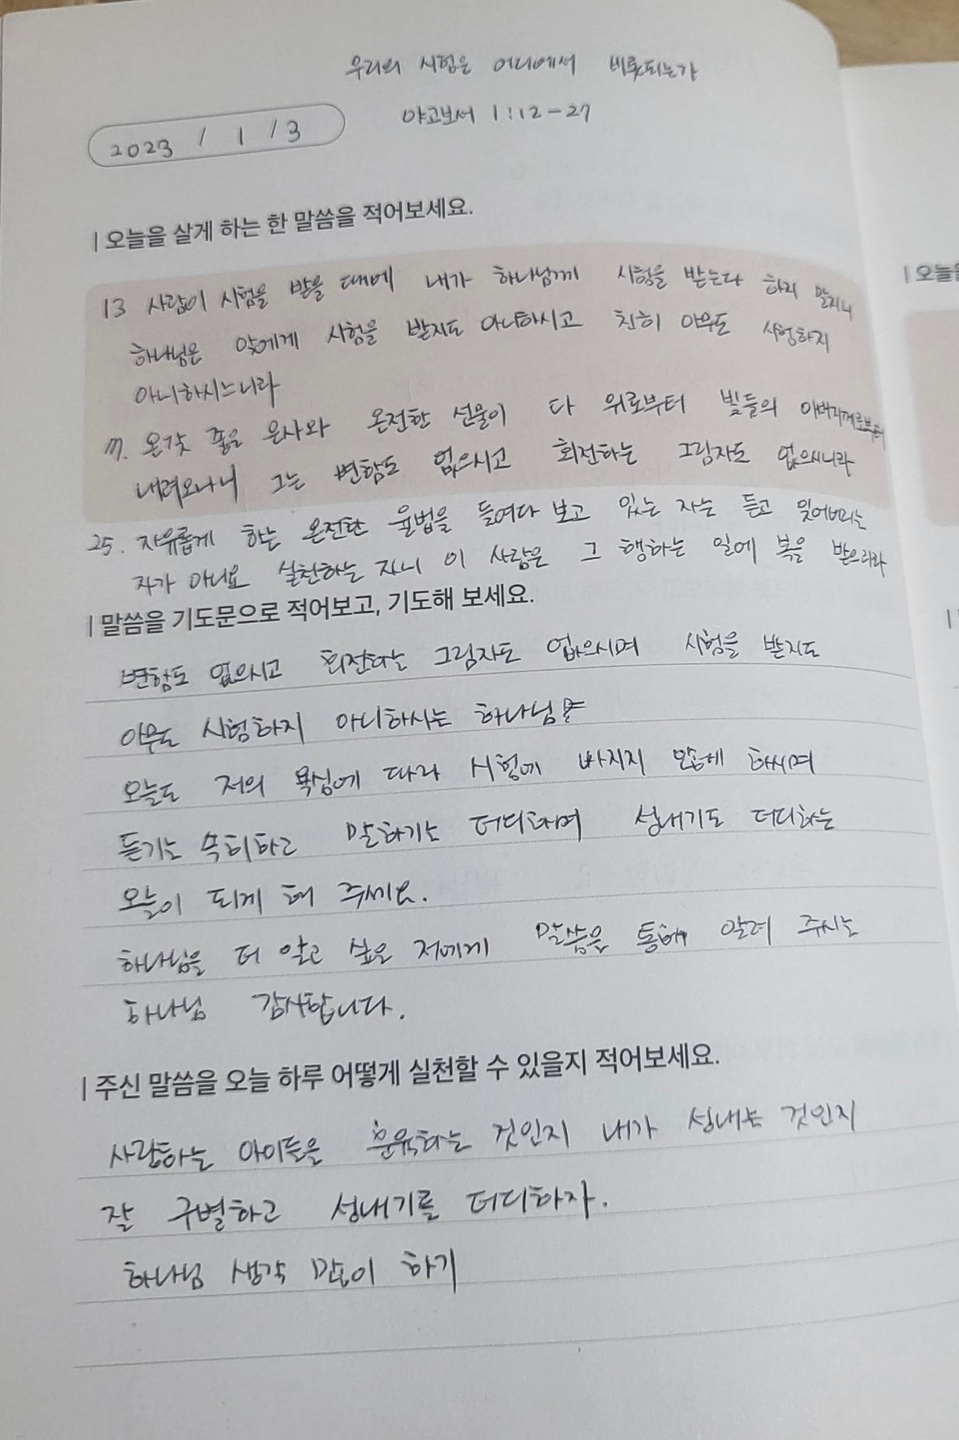 우리의 시험은 어디에서 비롯되는가
2023 / 1 / 3
야고보서 1:12-27
| 오늘을 살게 하는 한 말씀을 적어보세요.
13 사람이 시험을 받을 때에 내가 하나님께 시험을 받는다 하지 말지니
하나님은 악에게 시험을 받지도 아니하시고 친히 아무도 시험하지
아니하시느니라
17. 온갖 좋은 은사와 온전한 선물이 다 위로부터 빛들의 아버지께로부터
내려오나니 그는 변함도 없으시고 회전하는 그림자도 없으시니라
25. 자유롭게 하는 온전한 율법을 들여다 보고 있는 자는 듣고 잊어버리는
자가 아니요 실천하는 자니 이 사람은 그 행하는 일에 복을 받으리라
| 말씀을 기도문으로 적어보고, 기도해 보세요.
변함도 없으시고 회전하는 그림자도 없으시며 시험을 받지도
아무도 시험하지 아니하시는 하나님
오늘도 저의 욕심에 따라 시험에 빠지지 않게 하시며
듣기는 속히하고 말하기는 더디하며 성내기도 더디하는
오늘이 되게 해 주세요.
하나님을 더 알고 싶은 저에게 말씀을 통해 알려 주시는
하나님 감사합니다.
| 주신 말씀을 오늘 하루 어떻게 실천할 수 있을지 적어보세요.
사랑하는 아이들을 훈육하는 것인지 내가 성내는 것인지
잘 구별하고 성내기를 더디하자.
하나님 생각 많이 하기
| 오늘을